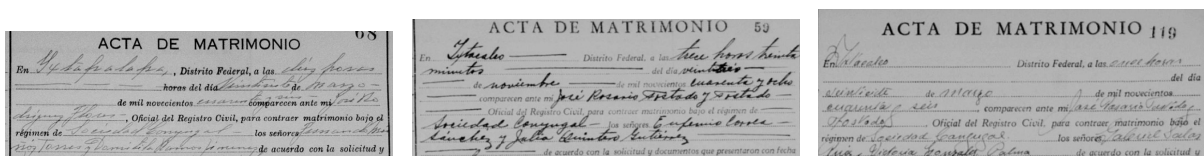 68
ACTA DE MATRIMONIO
En Ixtapalapa, Distrito Federal, a las diez horas
horas del día veintisiete de marzo
de mil novecientos cuarenta y seis comparecen ante mí
, Oficial del Registro Civil, para contraer matrimonio bajo el
régimen de Sociedad Conyugal los señores
de acuerdo con la solicitud y
ACTA DE MATRIMONIO 59
En Iztacalco Distrito Federal, a las trece horas treinta
minutos del día
de noviembre de mil novecientos cuarenta y ocho
comparecen ante mí José Rosario Tostado y Tostado
Oficial del Registro Civil, para contraer matrimonio bajo el régimen de
Sociedad Conyugal los señores Eugenio Correa
Sánchez y Julia Quintero Gutiérrez
de acuerdo con la solicitud y documentos que presentaron con fecha
ACTA DE MATRIMONIO 119
En Distrito Federal, a las once horas
del día
veintisiete de marzo de mil novecientos
cuarenta y seis comparecen ante mí José Rosario Tostado y
Tostado Oficial del Registro Civil, para contraer matrimonio bajo el
régimen de Sociedad Conyugal los señores Gabriel
Victoria González Palma de acuerdo con la solicitud y